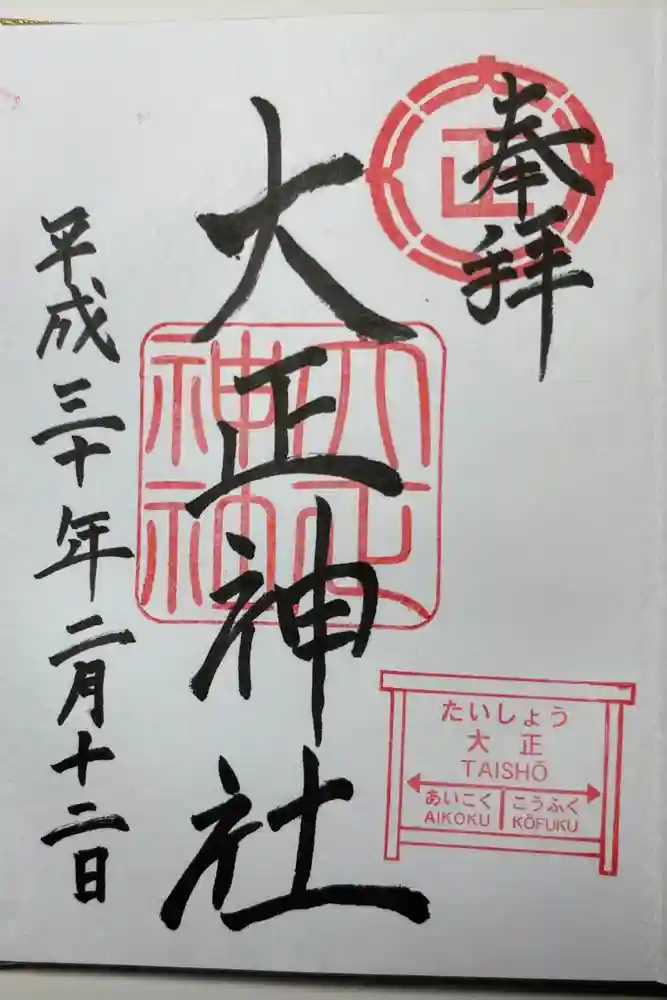 奉拝
正
大正神社
平成三十年二月十二日
たいしょう
大正
TAISHŌ
あいこく こうふく
AIKOKU KŌFUKU